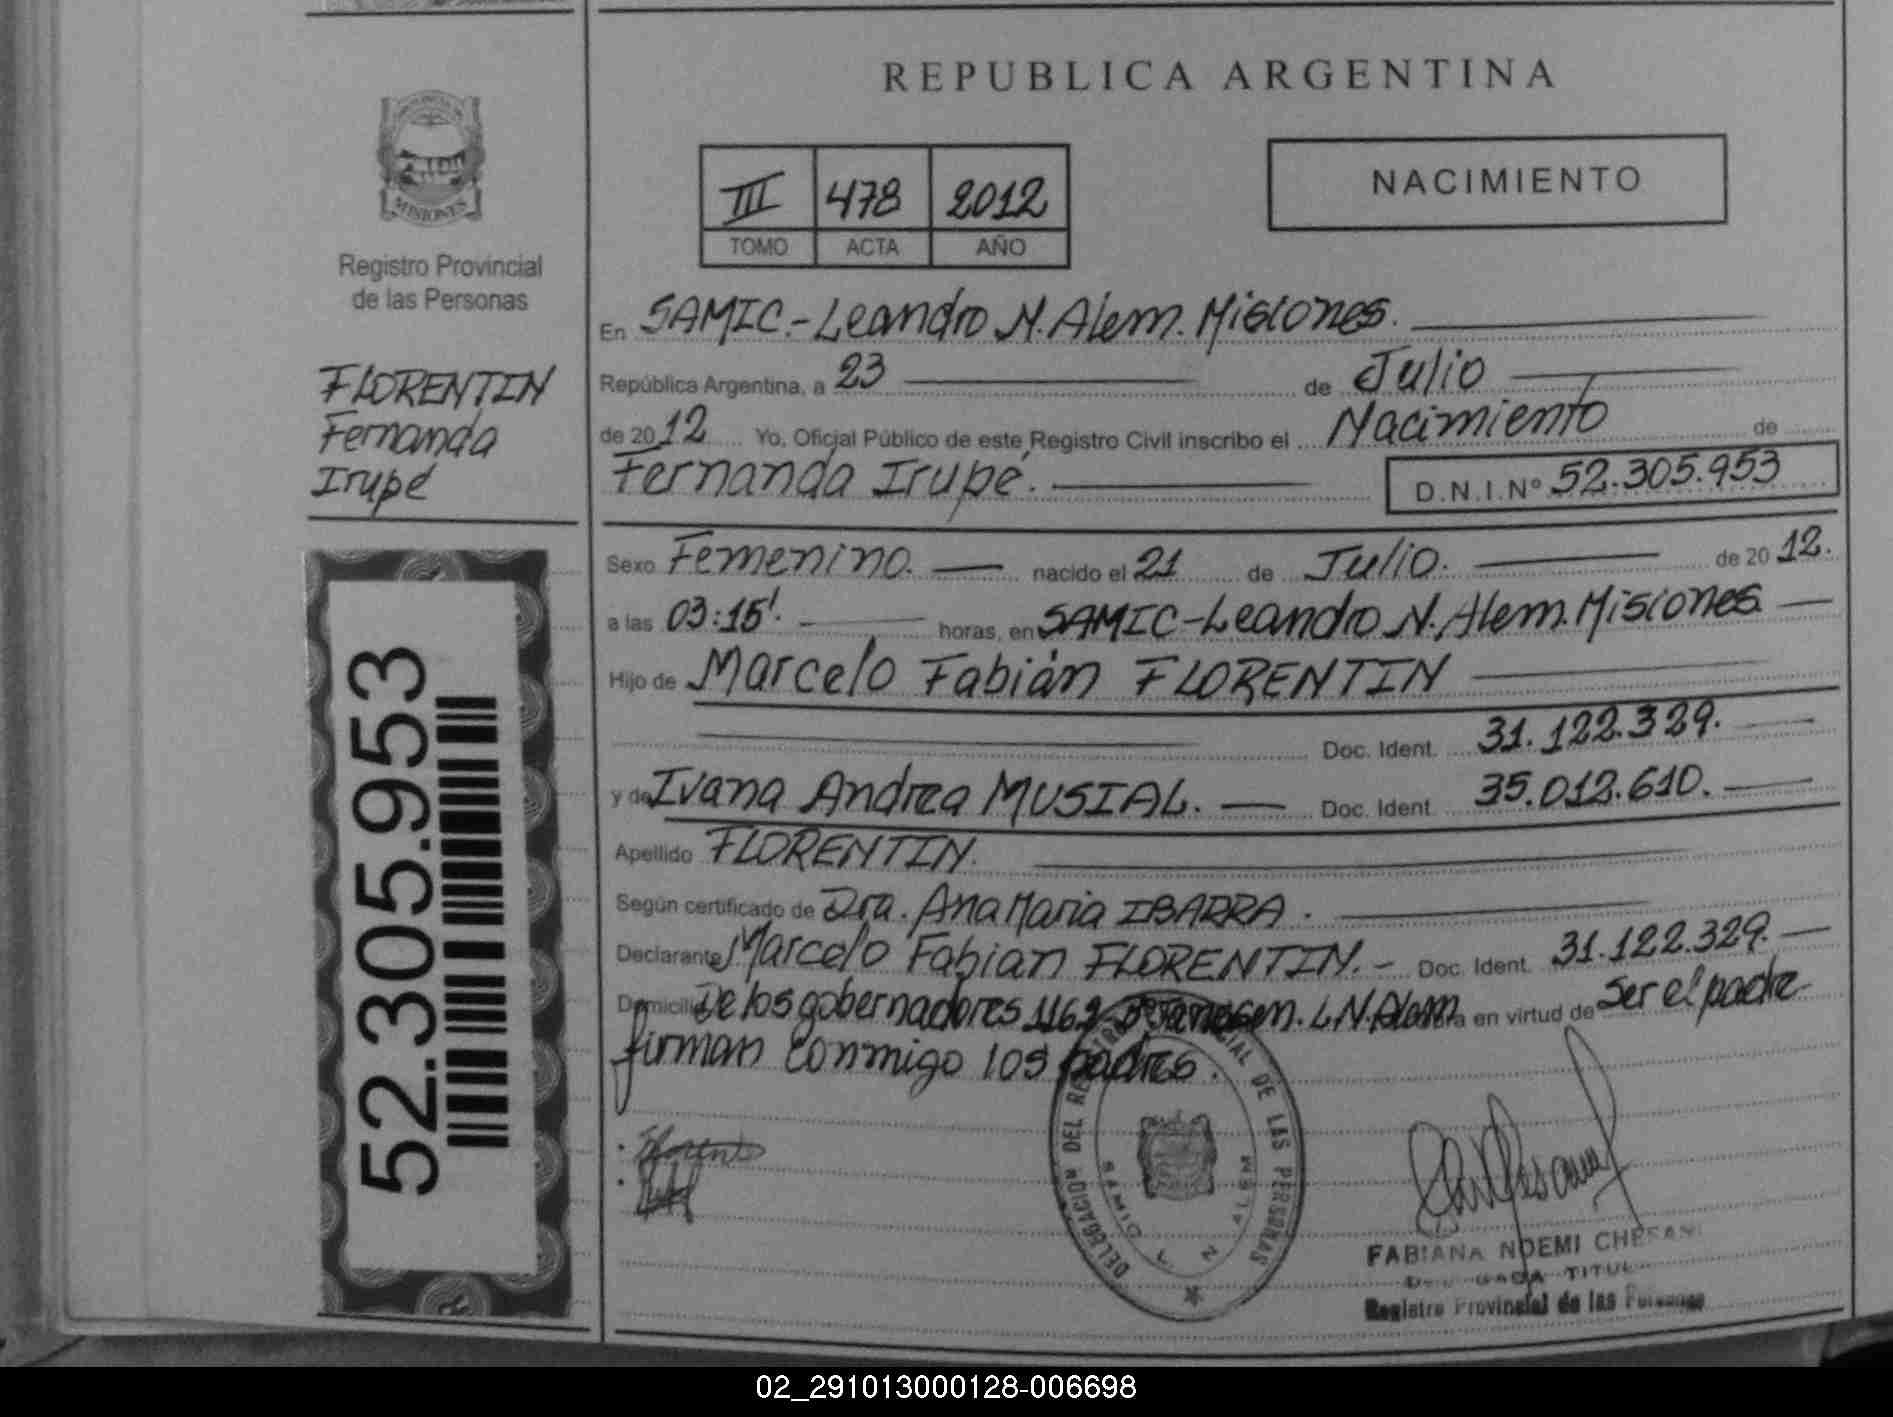 REPUBLICA ARGENTINA
MISIONES
Registro Provincial
de las Personas
FLORENTIN
Fernanda
Irupé
52.305.953
III 478 2012
TOMO ACTA AÑO
NACIMIENTO
En SAMIC.-Leandro N. Alem. Misiones.
República Argentina, a 23 de Julio
de 2012 Yo, Oficial Público de este Registro Civil inscribo el Nacimiento de
Fernanda Irupé. D.N.I.Nº 52.305.953
Sexo Femenino. nacido el 21 de Julio. de 2012.
a las 03:15'. horas, en SAMIC-Leandro N. Alem. Misiones
Hijo de Marcelo Fabián FLORENTIN
Doc. Ident. 31.122.329.
y de Ivana Andrea MUSIAL. Doc. Ident. 35.012.610.
Apellido FLORENTIN.
Según certificado de Dra. Ana Maria IBARRA.
Declarante Marcelo Fabian FLORENTIN.- Doc. Ident. 31.122.329.
Domicilio De los gobernadores 1162 L.N.Alem en virtud de Ser el padre
firman conmigo los padres.
DELEGACION DEL REGISTRO PROVINCIAL DE LAS PERSONAS
SAMIC L N ALEM
FABIANA NOEMI
TITUL
Registro Provincial de las Personas
02_291013000128-006698